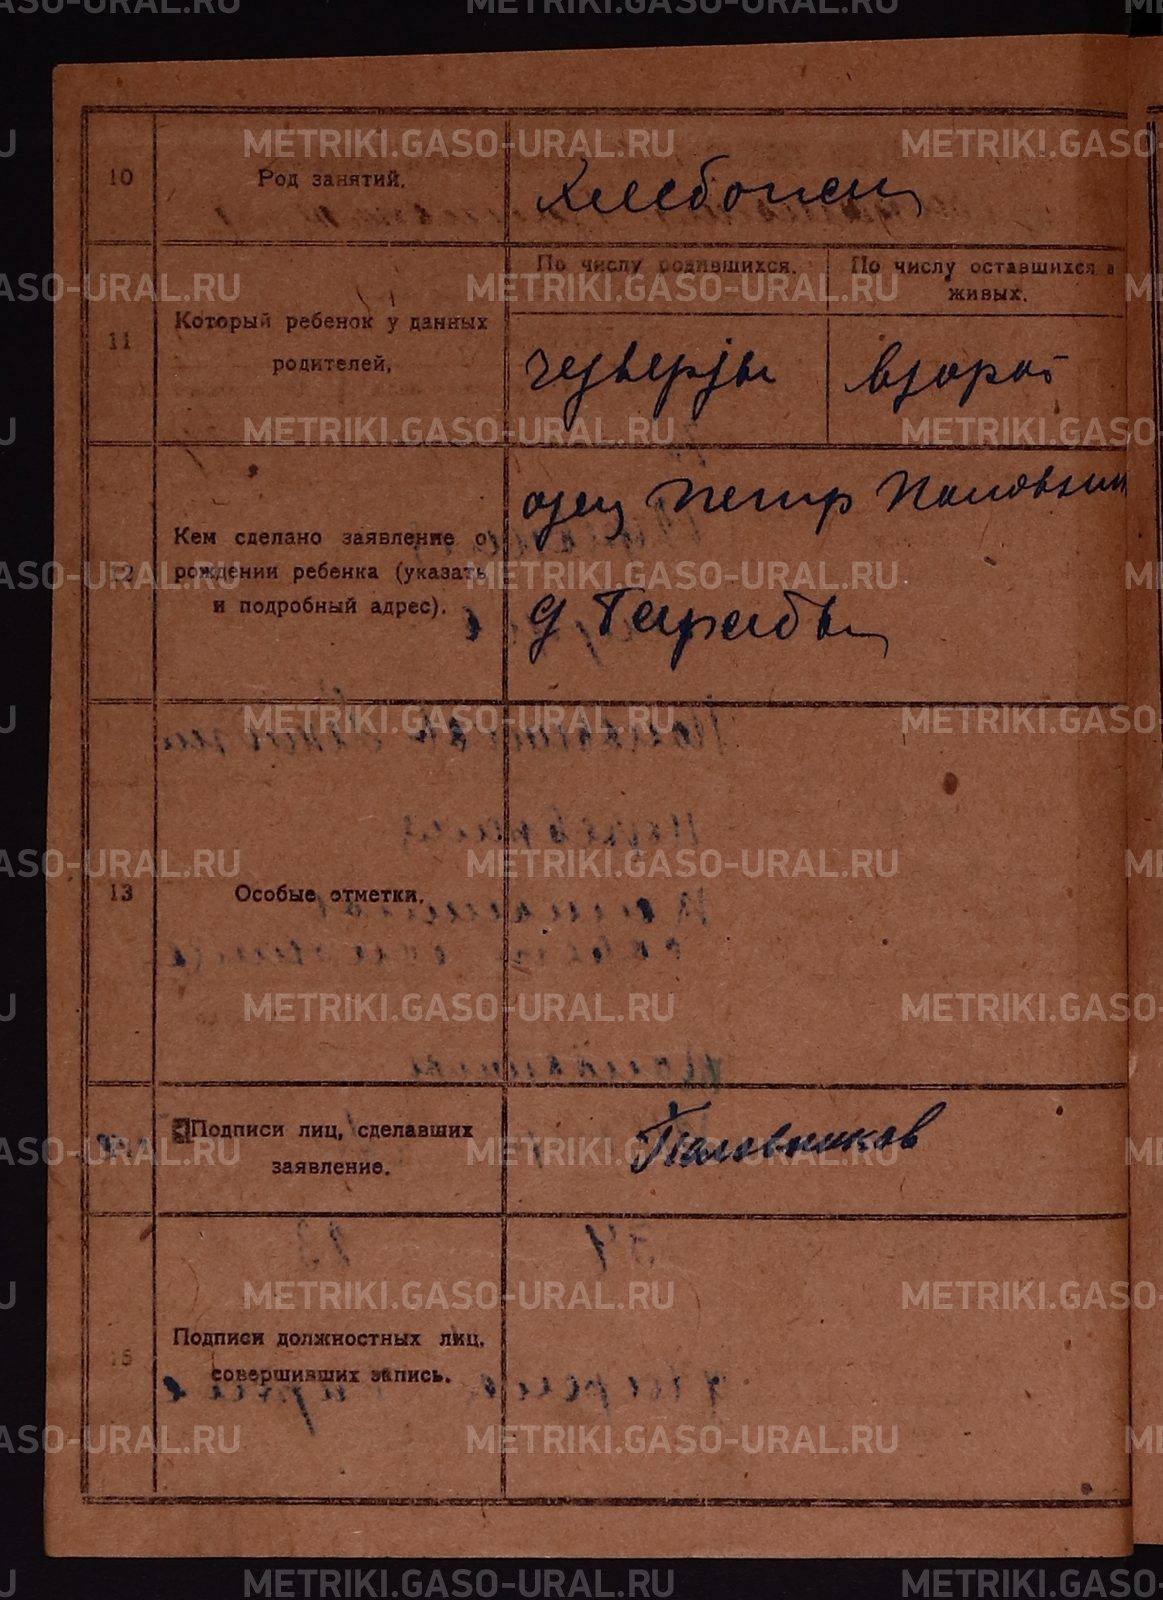 10
Род занятий.
Хлебопашец
11
Который ребенок у данных
родителей,
По числу родившихся.
По числу оставшихся в
живых.
четверты
второй
12
Кем сделано заявление о
рождении ребенка (указать
и подробный адрес).
отец Петр
д.
13
Особые отметки.
Подписи лиц, сделавших
заявление.
Половников
15
Подписи должностных лиц,
совершивших запись.
METRIKI.GASO-URAL.RU